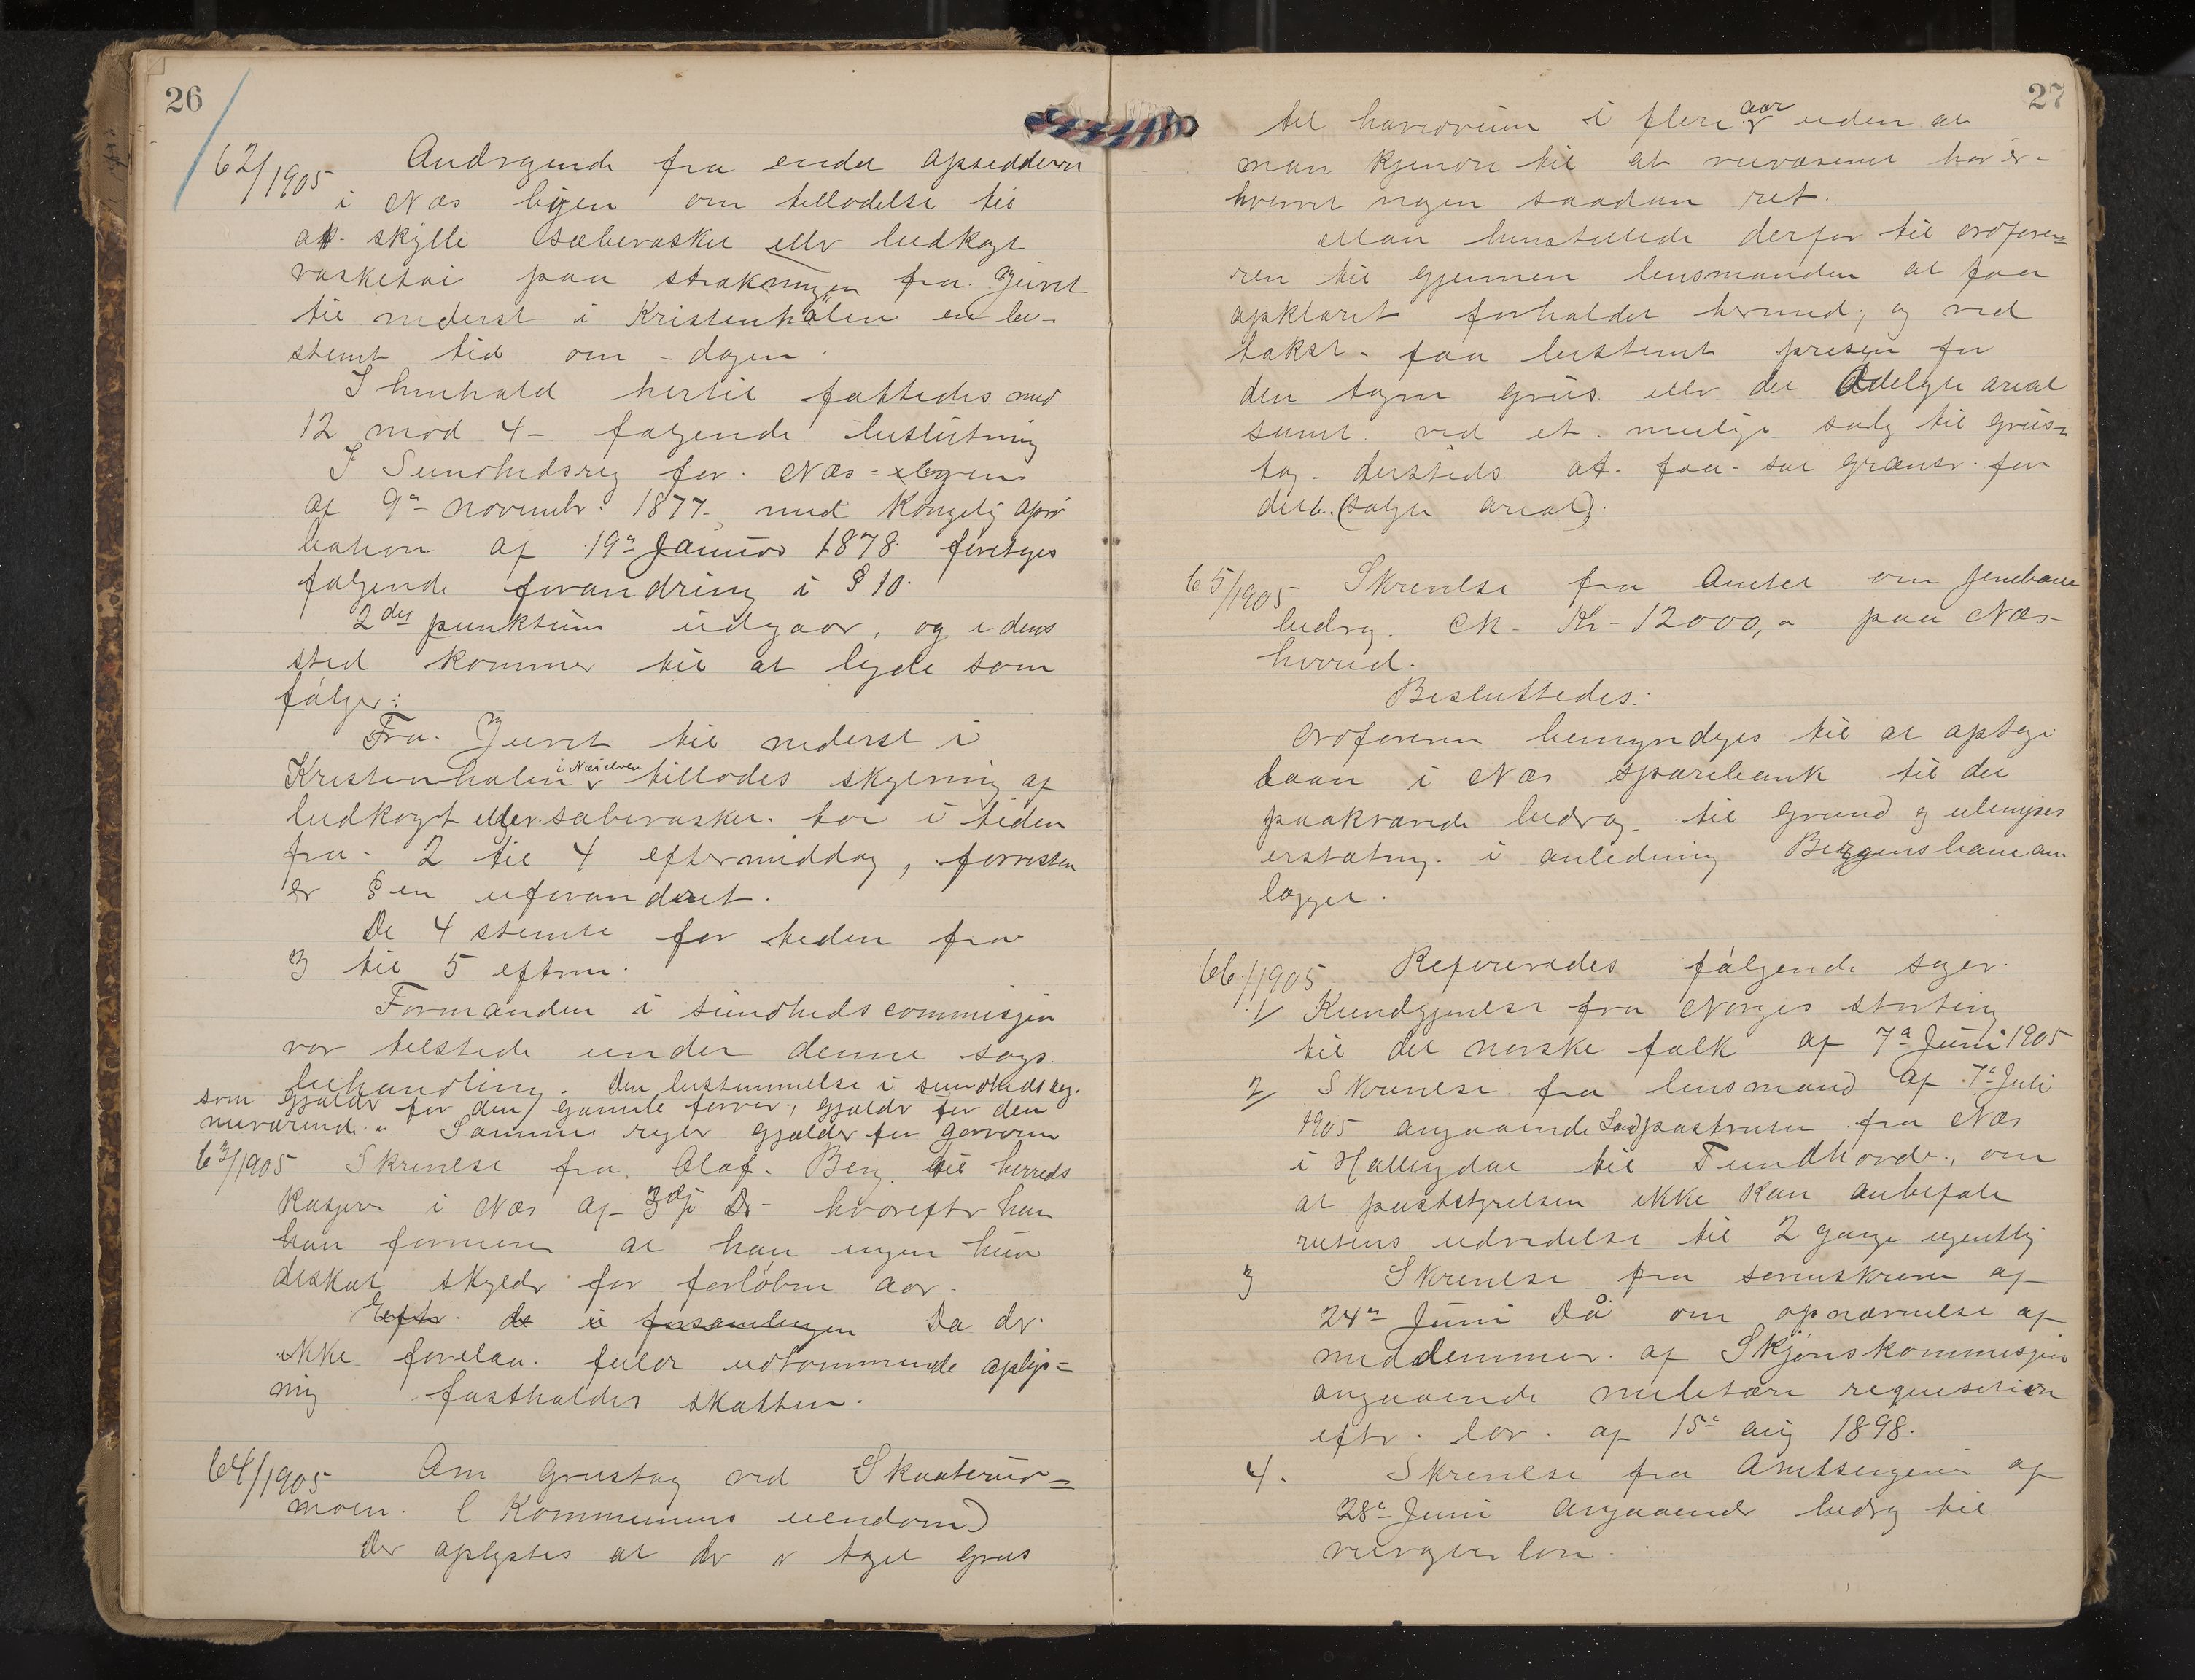 26
62/1905 Andragende fra endel opsiddere
i Næs byen om tilladelse til
at skylle sæbevasket eller ludkogt
vasketøi paa strækningen fra Juvet
til nederst i Kristenhølen en be-
stemt tid om dagen.
I henhold hertil fattedes med
12 mod 4 - følgende beslutning
I Sundhedsreg for Næs=byen
af 9de novembr. 1877, med Kongelig apro
bation af 19de Januar 1878 foretages
følgende forandring i § 10.
2det punktum udgaar, og i dens
sted kommer til at lyde som
følger:
Fra Juvet til nederst i
Kristenhølen i Næs elven tillades skylning af
ludkogt eller sæbevasket toi i tiden
fra 2 til 4 eftermiddag, forresten
er §en uforandret.
De 4 stemte for tiden fra
3 til 5 efterm.
Formanden i sundhedscommisjen
var tilstede under denne sags
behandling. Den bestemmelse i sundhedsreg.
som gjaldt for den gamle farver, gjælder for den
nuværende. Samme regler gjælder for garveren
63/1905 Skrivelse fra Olaf Berg til herreds
kasjeren i Næs af 3dje Ds hvorefter han
han formener at han ingen hun
deskat skylder for forløbne aar.
Efter de i forsamlingen Da der
ikke forelaa fuldt udtømmende oplys=
ning fastholdes skatten.
64/1905 Om grustag ved Skaaterud=
moen. (Kommunens eiendom)
Der oplystes at der er taget grus
27
til havedrium i flere aar uden at
man kjender til at veivæsenet har er-
hvervet nogen saadan ret.
Man henstillede derfor til ordføre=
ren til gjennem lensmanden at faa
opklaret forholdet hermed, og ved
takst faa bestemt prisen for
den tagne grus eller det ødelagte areal
samt ved et mulige salg til grus=
tag dersteds at faa sat grænser for
dette (solgte areal).
65/1905 Skrivelse fra Amtet om jernbane
bidrag Ck - Kr - 12000,- paa Næs
herred.
Besluttedes:
Ordføreren bemyndiges til at optage
laan i Næs sparebank til det
paakrævede bidrag til grund og ulempes
erstatning i anledning Bergensbanean
lægget.
66/1905 Refereredes følgende sager.
1/ Kundgjørelse fra Norges storting
til det norske folk af 7de Juni 1905
2/ Skrivelse fra lensmand af 7de Juli
1905 angaaende Landpostruten fra Næs
i Hallingdal til Tundhovd, om
at poststyrelsen ikke kan anbefale
rutens udvidelse til 2 gange ugentlig
3 Skrivelse fra sorenskriveren af
24de Juni Då om opnævnelse af
meddlemmer af Skjønskommisjon
angaaende militære requisition
eftr. lov af 15de aug 1898.
4. Skrivelse fra Amtsingeniør af
28de Juni angaaende bidrag til
veivogter løn.